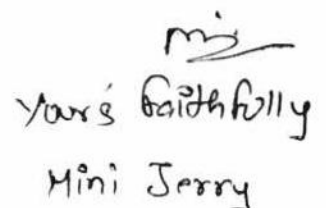 Your's faithfully
Mini Jerry